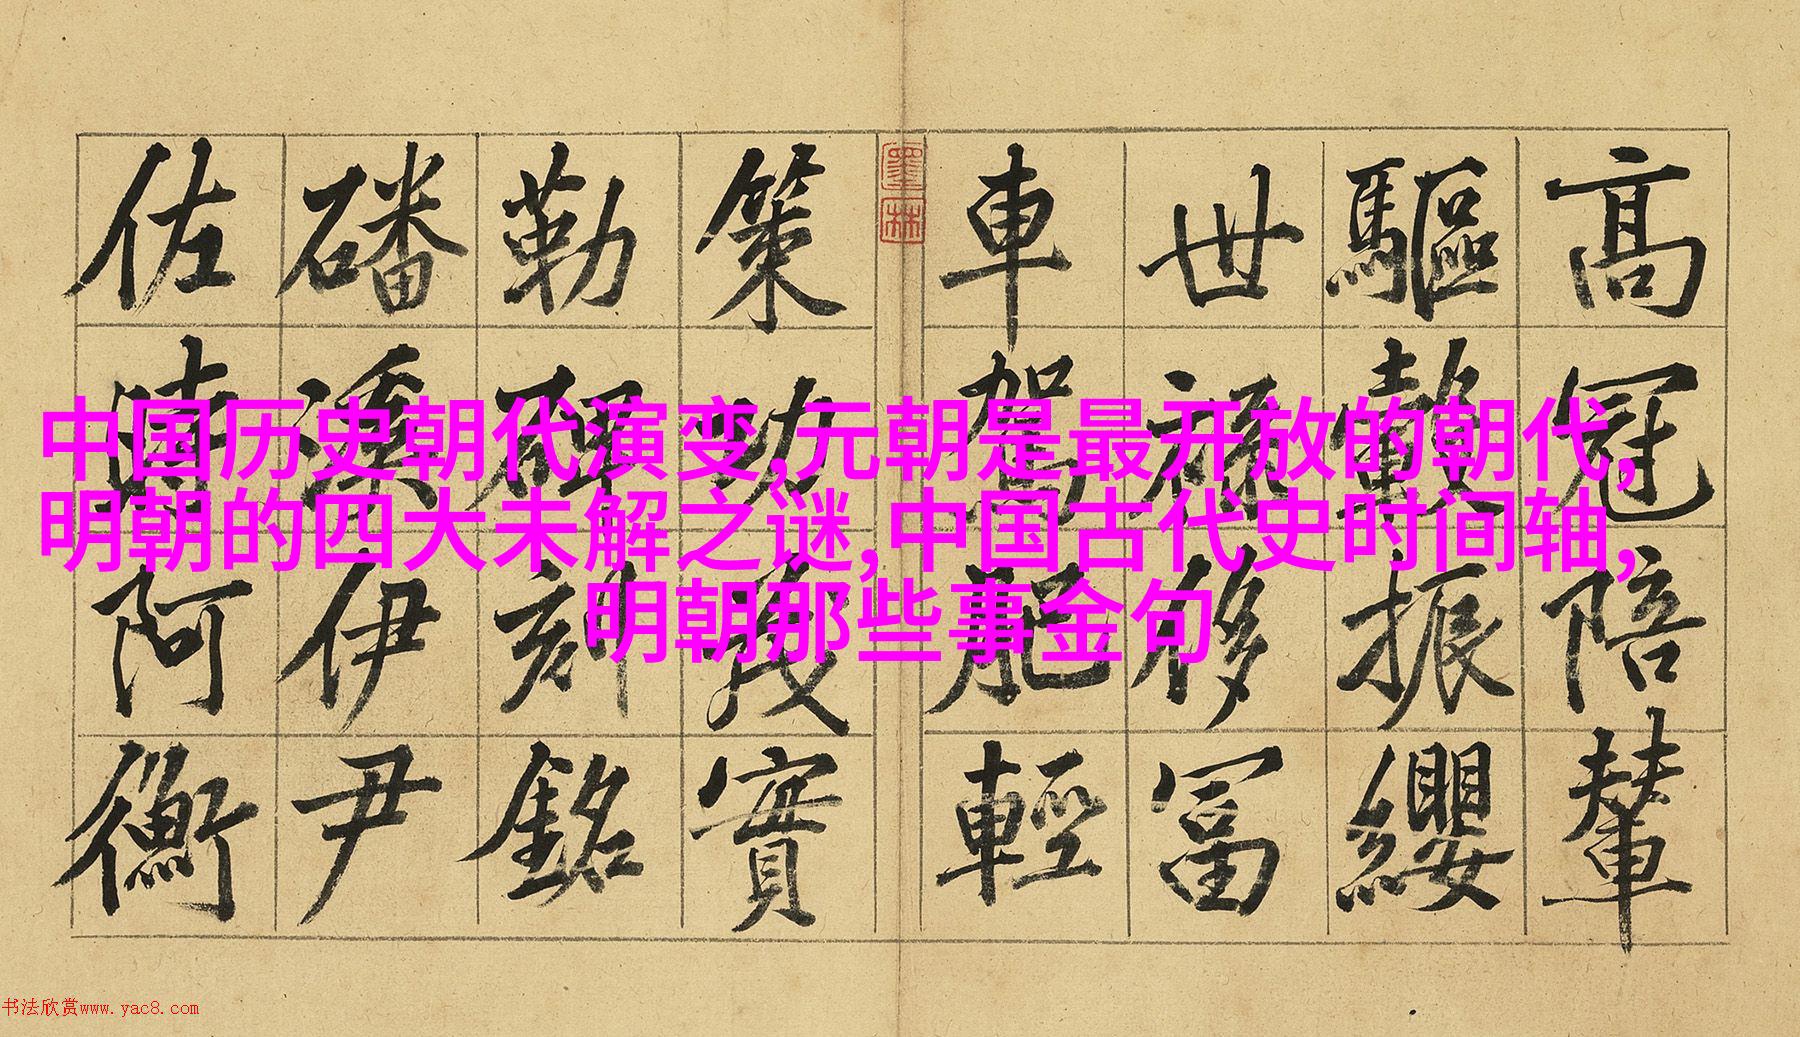 中国历史朝代演变,元朝是最开放的朝代,
明朝的四大未解之谜,中国古代史时间轴,
明朝那些事金句
高冠陪輦
驅轂振纓
世祿移富
車駕肥輕
墨林
策功茂實
勒碑刻銘
磻溪伊尹
佐時阿衡
书法欣赏www.yac8.com